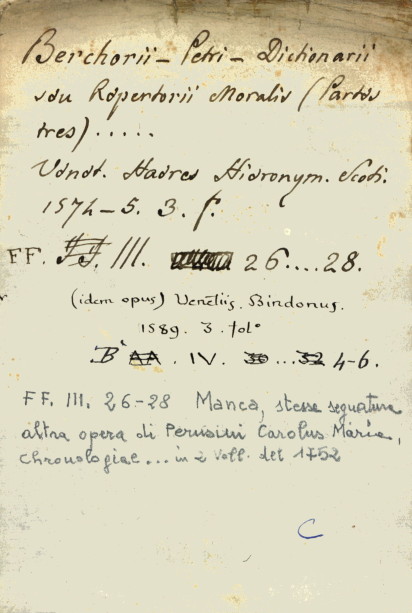 Berchorii - Petri - Dictionarii
seu Repertorii Moralis (Partes
tres) .....
Venet. Haeres Hieronym. Scoti.
1574-5. 3. f.
FF. FF. III. 26....28.
(idem opus) Venetiis. Bindonus.
1589. 3. fol°
B' AA . IV. 30...32 4-6.
FF. III. 26-28 Manca, stessa segnatura
altra opera di Perusini Carolus Maria,
Chronologiae... in 2 voll. del 1752
C